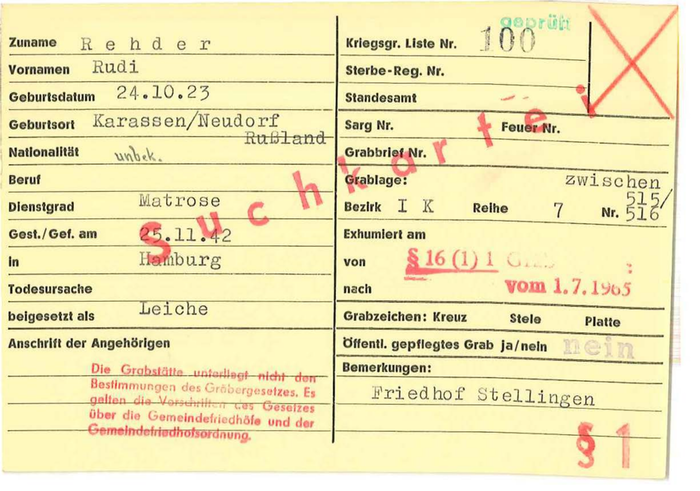 Zuname Rehder
Vornamen Rudi
Geburtsdatum 24.10.23
Geburtsort Karassen/Neudorf
Rußland
Nationalität unbek.
Beruf
Dienstgrad Matrose
Gest./Gef. am 25.11.42
in Hamburg
Todesursache
beigesetzt als Leiche
Anschrift der Angehörigen
Die Grabstätte unterliegt nicht den
Bestimmungen des Gräbergesetzes. Es
gelten die Vorschriften des Gesetzes
über die Gemeindefriedhöfe und der
Gemeindefriedhofsordnung.
Suchkartei
geprüft
Kriegsgr. Liste Nr. 100
Sterbe-Reg. Nr.
Standesamt
Sarg Nr. Feuer Nr.
Grabbrief Nr.
Grablage: zwischen
515/
Bezirk I K Reihe 7 Nr. 516
Exhumiert am
von § 16 (1) 1
nach vom 1.7.1965
Grabzeichen: Kreuz Stele Platte
Öffentl. gepflegtes Grab ja/nein nein
Bemerkungen:
Friedhof Stellingen
§ 1